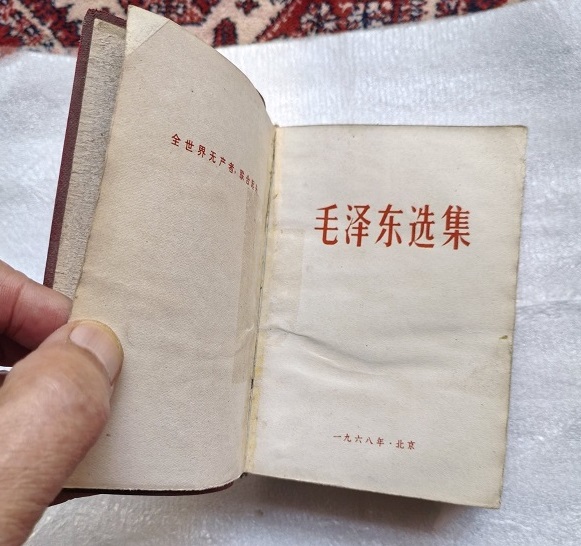 全世界无产者,联合起来
毛泽东选集
一九六八年·北京